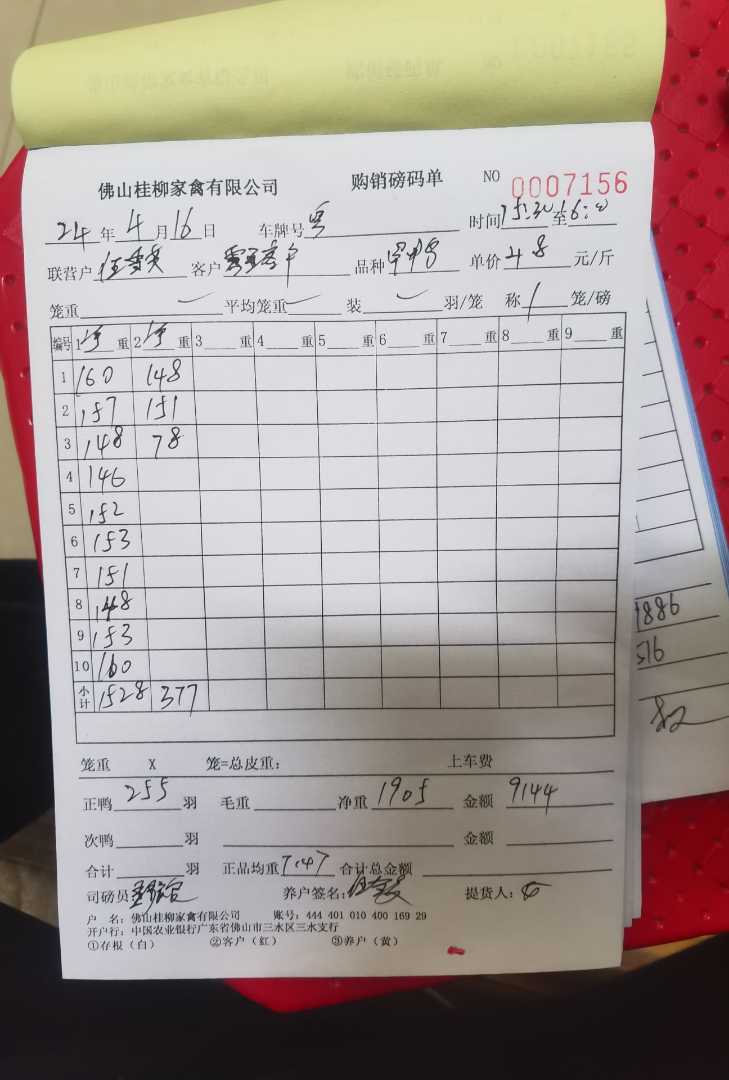 佛山桂柳家禽有限公司 购销磅码单 NO 0007156
24年4月16日 车牌号粤 时间15:30至16:00
联营户 客户 品种 单价4.8元/斤
笼重 平均笼重 装 羽/笼 称1笼/磅
编号 1净重 2净重 3重 4重 5重 6重 7重 8重 9重
1 160 148
2 157 151
3 148 78
4 146
5 152
6 153
7 151
8 148
9 153
10 160
小计 1528 377
笼重 X 笼=总皮重: 上车费
正鸭255羽 毛重 净重1905 金额9144
次鸭 羽 金额
合计 羽 正品均重7.47 合计总金额
司磅员 养户签名: 提货人:
户 名: 佛山桂柳家禽有限公司 账号: 444 401 010 400 169 29
开户行: 中国农业银行广东省佛山市三水区三水支行
①存根(白) ②客户(红) ③养户(黄)
516